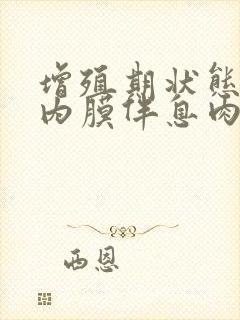 增殖期状態
内膜伴息肉
西恩